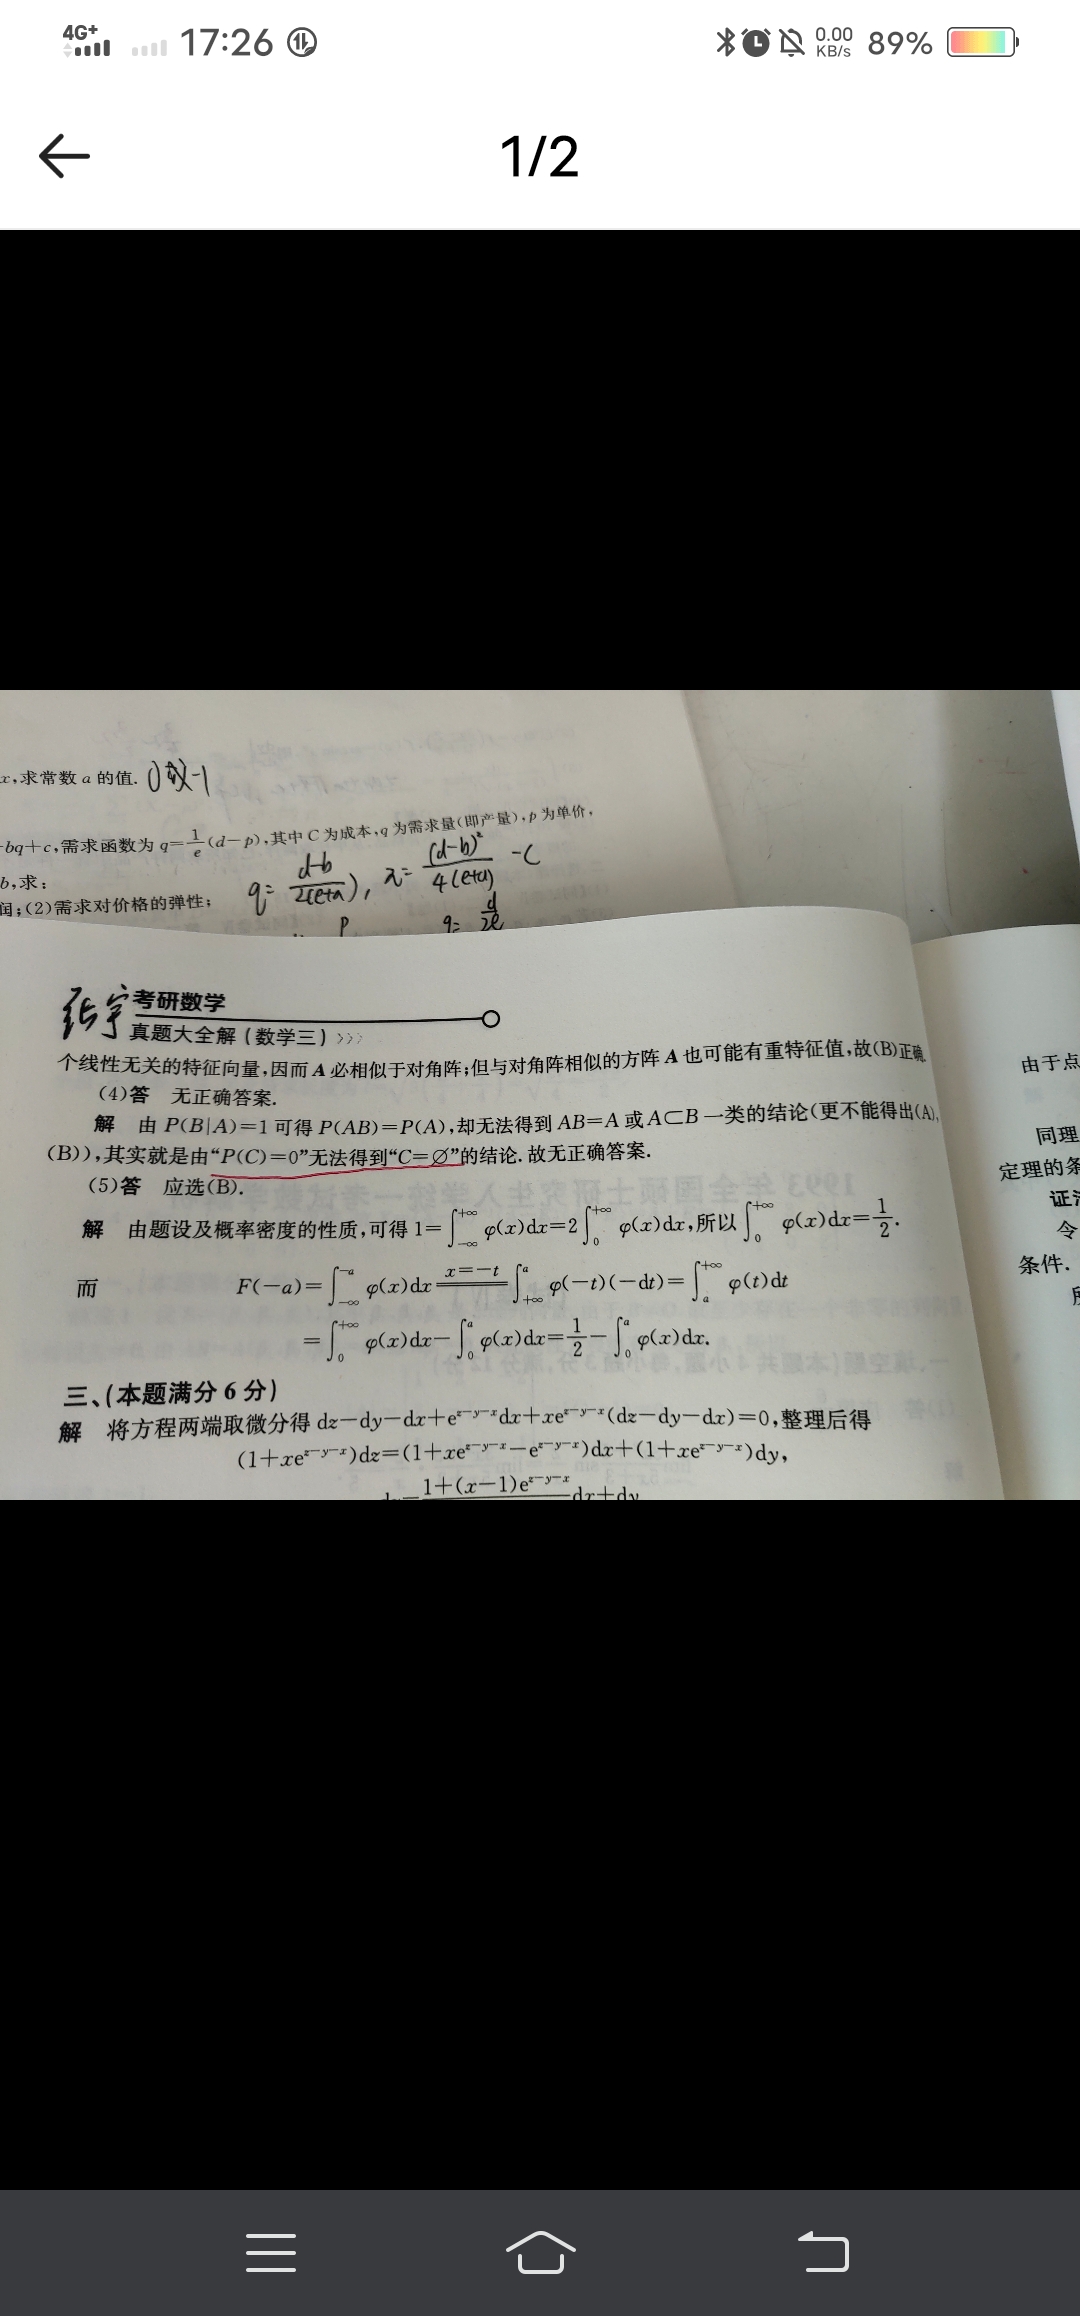 4G+ 17:26 0.00 KB/s 89%
1/2
x,求常数 a 的值. 0或-1
-bq+c,需求函数为 q=1/e(d-p),其中 C 为成本,q 为需求量(即产量),p 为单价,
b,求:
润;(2)需求对价格的弹性;
q= d-b/2(e+a), π= (d-b)²/4(e+a) -C
p q= d/2e
张宇 考研数学
真题大全解(数学三)>>>
个线性无关的特征向量,因而 A 必相似于对角阵;但与对角阵相似的方阵 A 也可能有重特征值,故(B)正确
(4)答 无正确答案.
解 由 P(B|A)=1 可得 P(AB)=P(A),却无法得到 AB=A 或 A⊂B 一类的结论(更不能得出(A),
(B)),其实就是由“P(C)=0”无法得到“C=∅”的结论.故无正确答案.
(5)答 应选(B).
解 由题设及概率密度的性质,可得 1=∫_{-∞}^{+∞} φ(x)dx=2∫_0^{+∞} φ(x)dx,所以∫_0^{+∞} φ(x)dx=1/2.
而 F(-a)=∫_{-∞}^{-a} φ(x)dx x=-t ∫_{+∞}^{a} φ(-t)(-dt)=∫_a^{+∞} φ(t)dt
=∫_0^{+∞} φ(x)dx-∫_0^a φ(x)dx=1/2-∫_0^a φ(x)dx.
三、(本题满分 6 分)
解 将方程两端取微分得 dz-dy-dx+e^{z-y-x}dx+xe^{z-y-x}(dz-dy-dx)=0,整理后得
(1+xe^{z-y-x})dz=(1+xe^{z-y-x}-e^{z-y-x})dx+(1+xe^{z-y-x})dy,
1+(x-1)e^{z-y-x} dx+dy
由于点
同理
定理的条
证
令
条件.